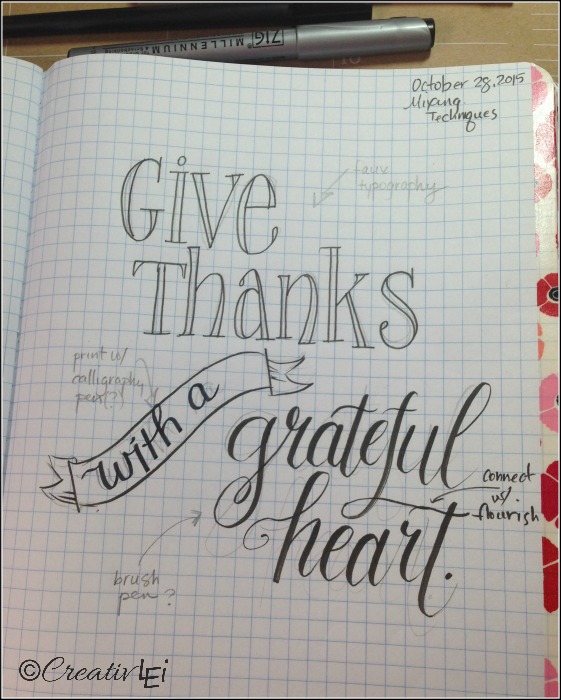 ZIG MILLENNIUM
October 28, 2015
Mixing
Techniques
faux
typography
Give
Thanks
print w/
calligraphy
pen(?)
with a
grateful
connect
w/.
flourish
heart.
brush
pen?
©CreativLEi